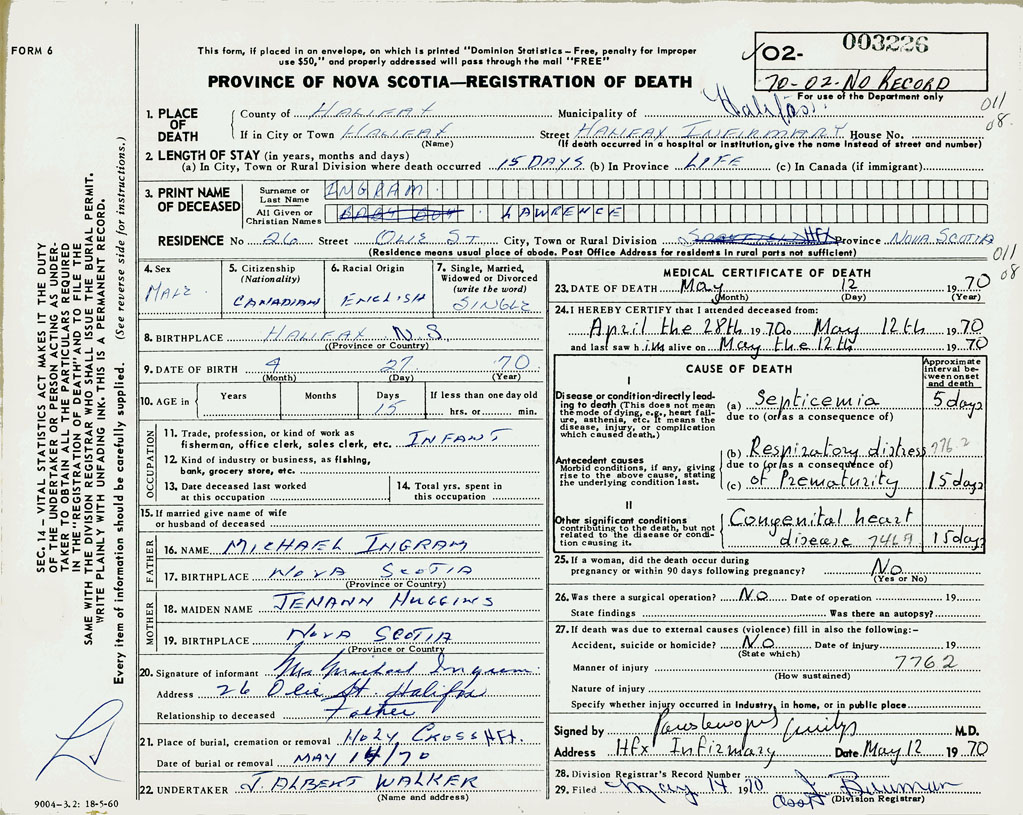 FORM 6
This form, if placed in an envelope, on which is printed "Dominion Statistics – Free, penalty for improper
use $50," and properly addressed will pass through the mail "FREE"
02- 003226
70-02-NO RECORD
For use of the Department only
PROVINCE OF NOVA SCOTIA—REGISTRATION OF DEATH
011
08.
1. PLACE OF DEATH
County of HALIFAX Municipality of Halifax
If in City or Town HALIFAX Street HALIFAX INFIRMARY House No.
(Name) (If death occurred in a hospital or institution, give the name instead of street and number)
2. LENGTH OF STAY (in years, months and days)
(a) In City, Town or Rural Division where death occurred 15 DAYS (b) In Province LIFE (c) In Canada (if immigrant)
3. PRINT NAME OF DECEASED
Surname or Last Name INGRAM
All Given or Christian Names BABY BOY LAWRENCE
RESIDENCE No 26 Street OLIE ST. City, Town or Rural Division HFX Province NOVA SCOTIA
(Residence means usual place of abode. Post Office Address for residents in rural parts not sufficient)
011
08
4. Sex MALE
5. Citizenship (Nationality) CANADIAN
6. Racial Origin ENGLISH
7. Single, Married, Widowed or Divorced (write the word) SINGLE
8. BIRTHPLACE HALIFAX N.S
(Province or Country)
9. DATE OF BIRTH 4 27 70
(Month) (Day) (Year)
10. AGE in Years Months Days 15 If less than one day old hrs. or min.
OCCUPATION
11. Trade, profession, or kind of work as
fisherman, office clerk, sales clerk, etc. INFANT
12. Kind of industry or business, as fishing,
bank, grocery store, etc.
13. Date deceased last worked
at this occupation
14. Total yrs. spent in
this occupation
15. If married give name of wife
or husband of deceased
FATHER
16. NAME MICHAEL INGRAM
17. BIRTHPLACE NOVA SCOTIA
(Province or Country)
MOTHER
18. MAIDEN NAME JENANN HUGGINS
19. BIRTHPLACE NOVA SCOTIA
(Province or Country
20. Signature of informant Mr Michael Ingram
Address 26 Olie St. Halifax
Relationship to deceased Father
21. Place of burial, cremation or removal HOLY CROSS HFX.
Date of burial or removal MAY 14/70
22. UNDERTAKER J. ALBERT WALKER
(Name and address)
MEDICAL CERTIFICATE OF DEATH
23. DATE OF DEATH May 12 1970
(Month) (Day) (Year)
24. I HEREBY CERTIFY that I attended deceased from:
April the 28th 1970 to May 12th 1970
and last saw him alive on May the 12th 1970
CAUSE OF DEATH
Approximate interval between onset and death
I
Disease or condition directly leading to death (This does not mean
the mode of dying, e.g., heart failure, asthenia, etc. It means the
disease, injury, or complication
which caused death.)
(a) Septicemia 5 days
due to (or as a consequence of)
Antecedent causes
Morbid conditions, if any, giving
rise to the above cause, stating
the underlying condition last.
(b) Respiratory distress 776.2
due to (or as a consequence of)
(c) of Prematurity 15 days
II
Other significant conditions
contributing to the death, but not
related to the disease or condition causing it.
Congenital heart
disease 7469 15 days
25. If a woman, did the death occur during
pregnancy or within 90 days following pregnancy? No
(Yes or No)
26. Was there a surgical operation? NO Date of operation 19
State findings Was there an autopsy?
27. If death was due to external causes (violence) fill in also the following:–
Accident, suicide or homicide? NO Date of injury 19
(State which)
Manner of injury 7762
(How sustained)
Nature of injury
Specify whether injury occurred in Industry, in home, or in public place
Signed by M.D.
Address Hfx Infirmary Date May 12 1970
28. Division Registrar's Record Number
29. Filed May 14 1970
(Division Registrar)
SEC. 14 – VITAL STATISTICS ACT MAKES IT THE DUTY
OF THE UNDERTAKER OR PERSON ACTING AS UNDERTAKER TO OBTAIN ALL THE PARTICULARS REQUIRED
IN THE "REGISTRATION OF DEATH" AND TO FILE THE
SAME WITH THE DIVISION REGISTRAR WHO SHALL ISSUE THE BURIAL PERMIT.
WRITE PLAINLY WITH UNFADING INK. THIS IS A PERMANENT RECORD.
Every item of information should be carefully supplied. (See reverse side for instructions.)
9004-3.2: 18-5-60